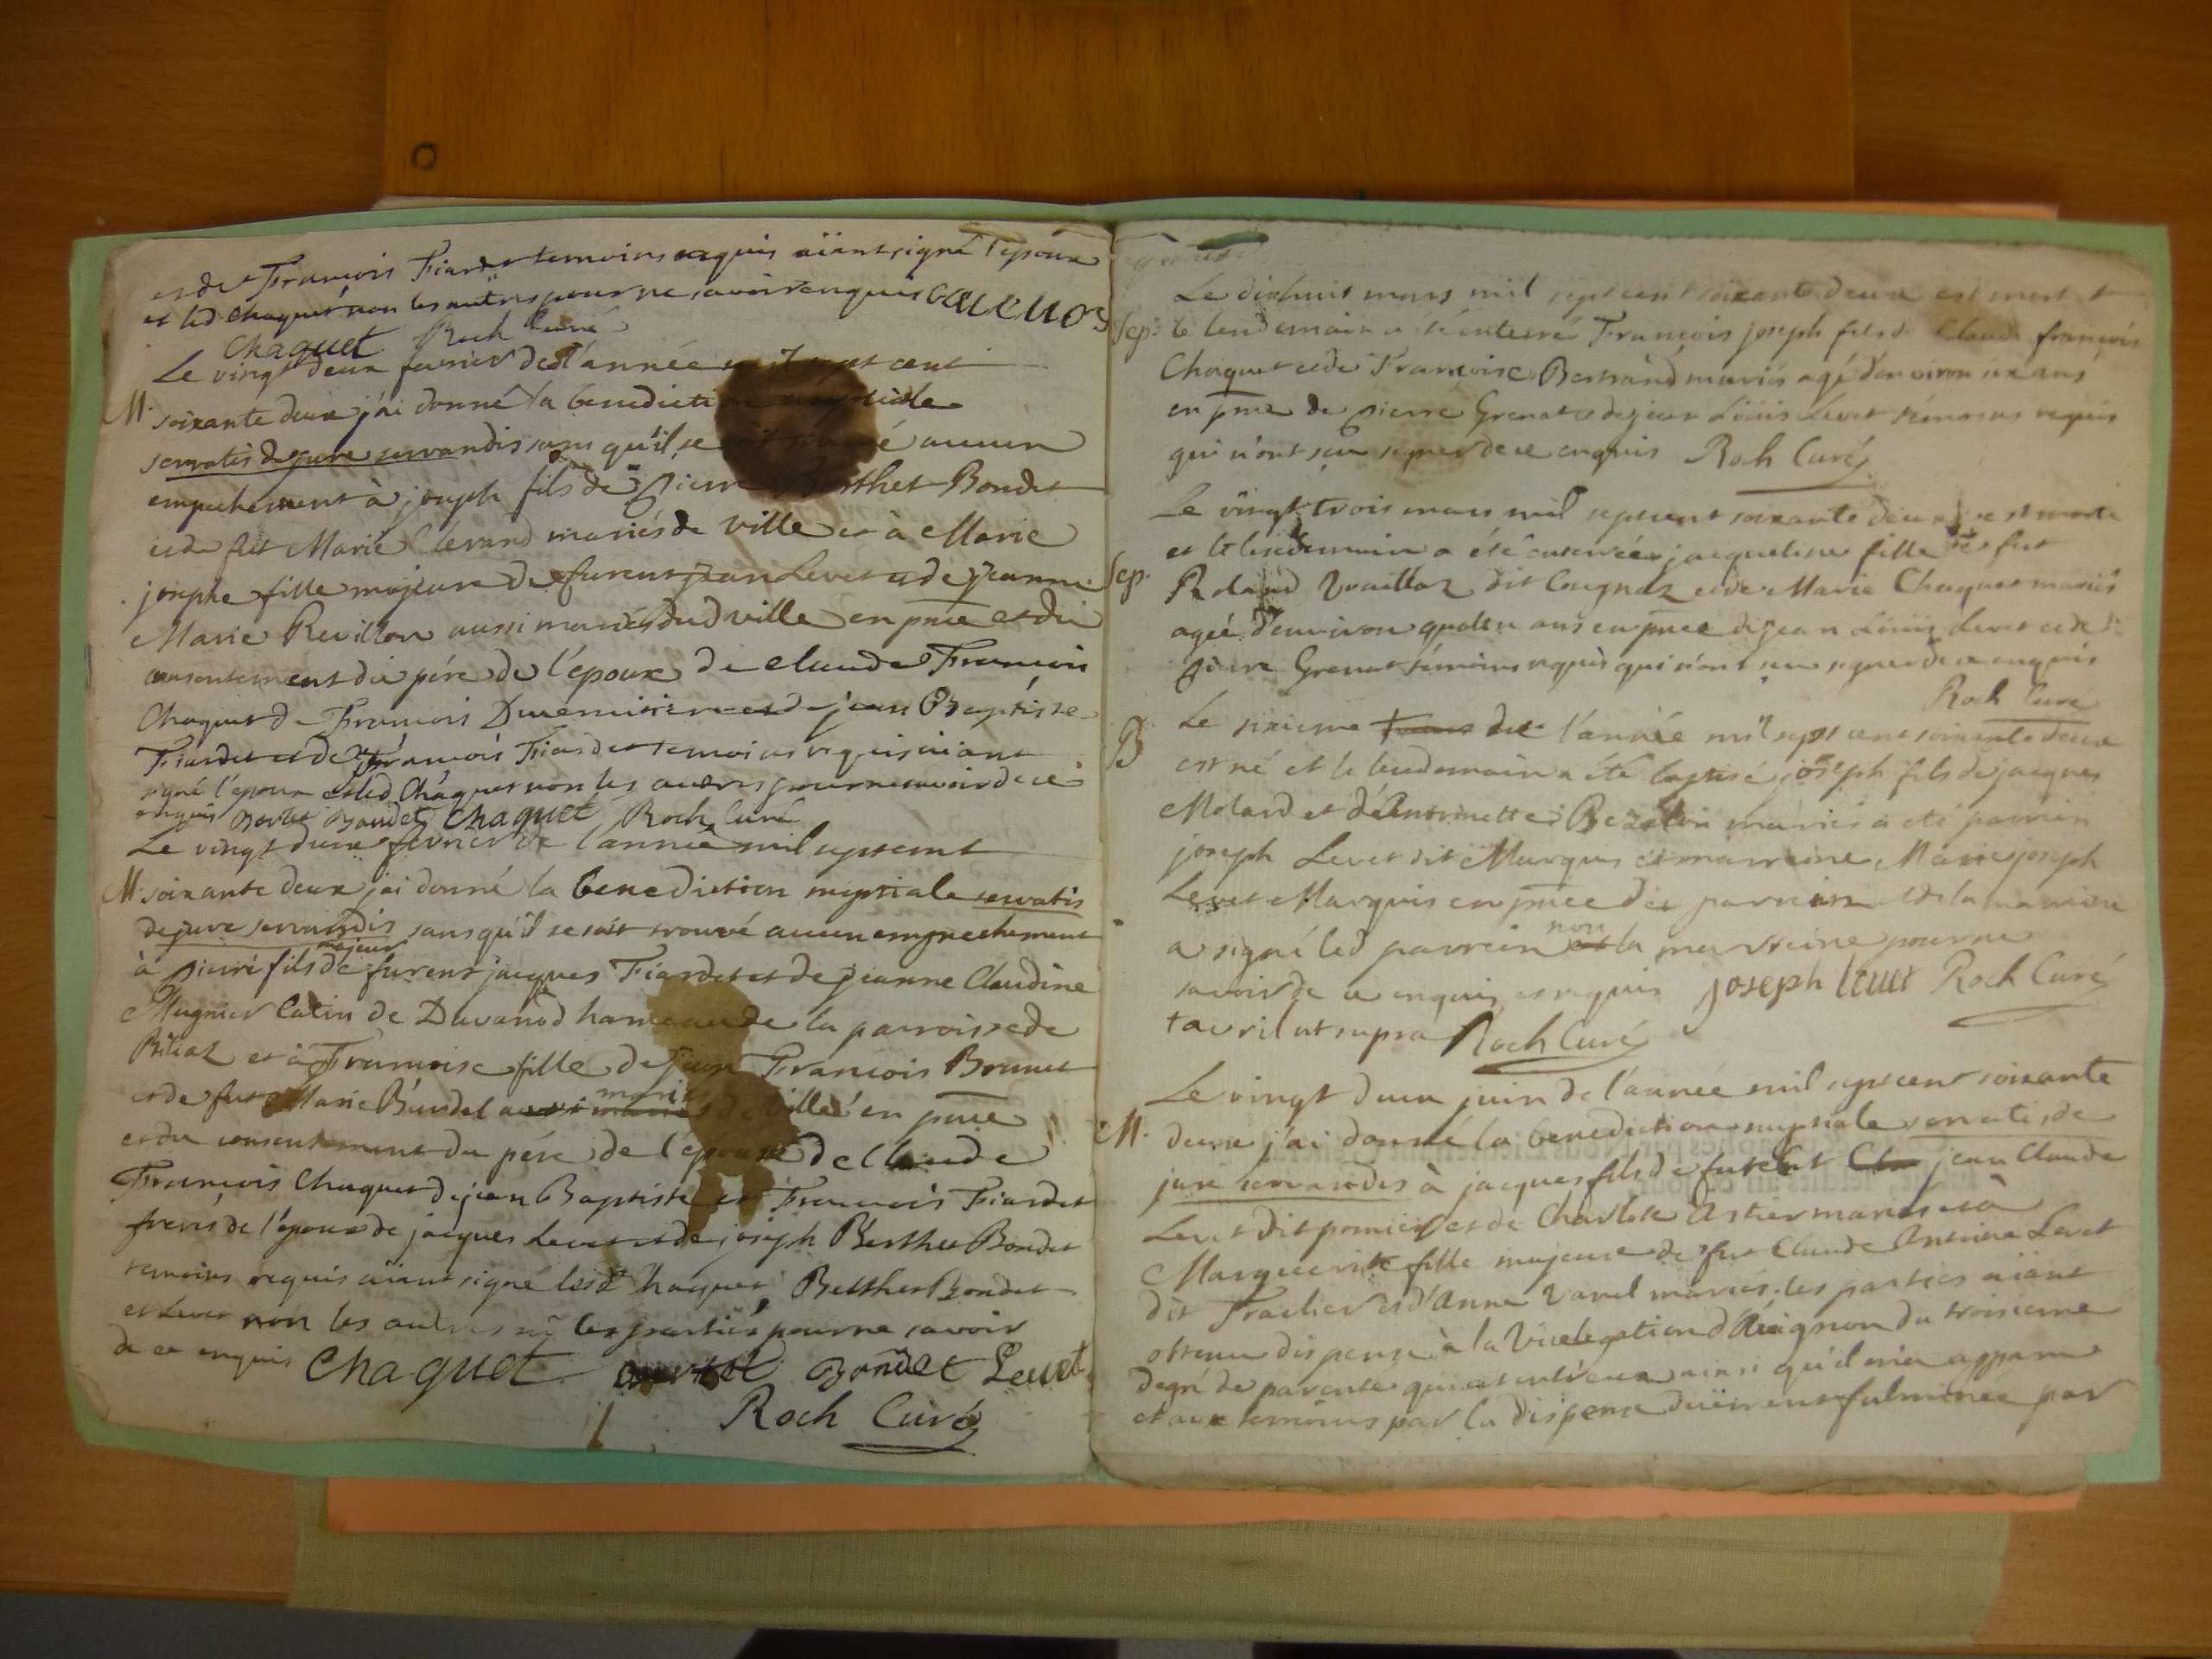 et de François Fiardet temoins requis aïant signé l'epoux
et led Chaquet non les autres pour ne savoir enquis
Chaquet Roch Curé
Le vingt deux fevrier de l'année mil sept cent
M. soixante deux j'ai donné la benediction nuptiale
servatis de jure servandis sans qu'il se soit trouvé aucun
empechement à joseph fils de Pierre Berthet Bondet
et de fut Marie Cterand mariés de ville et à Marie
josephe fille majeure de furent jean Levet et de jeanne
Marie Revillon aussi mariés dud ville en pñce et du
consentement du pére de l'époux de claude François
Chaquet de François Duvernier et de jean Baptiste
Fiardet et de François Fiardet temoins requis aïant
signé l'époux et led Chaquet non les autres pour ne savoir de ce
enquis Bertet Bondet Chaquet Roch Curé
Le vingt deux fevrier de l'année mil septcent
M. soixante deux jai donné la benediction nuptiale servatis
de jure servandis sans qu'il se soit trouvé aucun empechement
à Pierre fils majeur de furent jacques Fiardet et de jeanne Claudine
Mugnier Catin de Davanod hameau de la parroisse de
Biliaz et à Francoise fille de jean François Brunet
et de fut Marie Bundel mariés de Ville en pñce
et du consentement du pére de l'épouse de Claude
François Chaquet de jean Baptiste et François Fiardet
freres de l'epoux de jacques Levet et de joseph Berthet Bondet
temoins requis aïant signé lesd Chaquet, Berthet Bondet
et Levet non les autres ni les parties pour ne savoir
de ce enquis Chaquet Bertet Bondet Levet
Roch Curé
Le dixhuit mars mil sept cent soixante deux est mort et
Sep. le lendemain a été enterré François joseph fils de Claude françois
Chaquet et de Françoise Bertrand mariés agé d'environ six ans
en pñce de Pierre Grenat et de jean Loüis Levet témoins requis
qui n'ont scu signer de ce enquis Roch Curé
Le vingt trois mars mil septcent soixante deux est morte
et le lendemain a été enterrée jacqueline fille de fut
Sep. Roland Vuaillaz dit Cognaz et de Marie Chaquet mariés
agée d'environ quatre ans en pñce de jean Loüis Levet et de
Pierre Grenat témoins requis qui n'ont scu signer de ce enquis
Roch Curé
B Le sixieme de l'année mil sept cent soixante deux
est né et le lendemain a été baptisé joseph fils de jacques
Molard et d'Antoinette mariés a été parrein
joseph Levet dit Marquis et marreine Marie joseph
Levet Marquis en pñce du parrein et de la marreine
a signé led parrein non la marreine pour ne
savoir de ce enquis et requis joseph levet Roch Curé
+ avril ut supra Roch Curé
Le vingt deux juin de l'année mil septcent soixante
M. deux j'ai donné la benediction nuptiale servatis de
jure servandis à jacques fils de furent jean Claude
Levet dit pomier et de Charlote Astier mariés et à
Marguerite fille majeure de fut Claude Antoine Levet
dit Frailier et d'Anne Vanel mariés. les parties aiant
obtenu dispense à la Vicelegation d'Avignon du troisieme
degré de parenté qui est entr'eux ainsi qu'il m'a apparu
et aux temoins par la dispense düement fulminée par